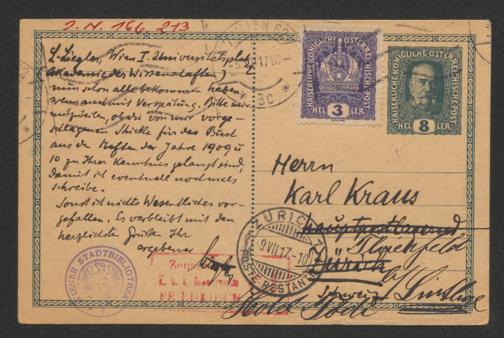 I. N. 166.213
L. Liegler, Wien I. Universitätsplatz 2
(Akademie der Wissenschaften)
nun schon alle bekommen haben
wenn auch mit Verspätung. Bitte mir
mitzuteilen, ob die von mir vorge-
schlagenen Stücke für das Buch
aus den Heften der Jahre 1909 u.
10 zu Ihrer Kenntnis gelangt sind,
damit ich eventuell nochmals
schreibe.
Sonst ist nichts Wesentliches vor-
gefallen. Es verbleibt mit den
herzlichsten Grüßen Ihr
ergebener
Liegler
WIENER STADTBIBLIOTHEK
KAISERLICHE KÖNIGLICHE ÖSTERREICHISCHE POST
3
HELLER
KAISERLICHE KÖNIGLICHE ÖSTERREICHISCHE POST
8
HELLER
Herrn
Karl Kraus
hauptpostlagernd
Zürich
Schweiz
Hotel Tödi
Tierfehld
Linthal
ZÜRICH
9.VII.17